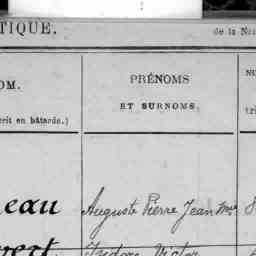 TIQUE.
de la No
OM.
PRÉNOMS
ET SURNOMS.
crit en bâtarde.)
eau Auguste Pierre Jean Mie
vert Isidore Victor